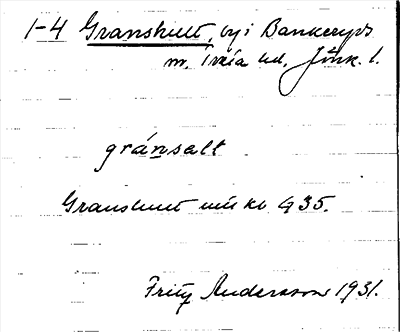 1-4 Granshult, by i Bankeryds
sn, Tveta hd, Jönk. l.
gránsalt
Granshult
Fritz Andersson 1931.